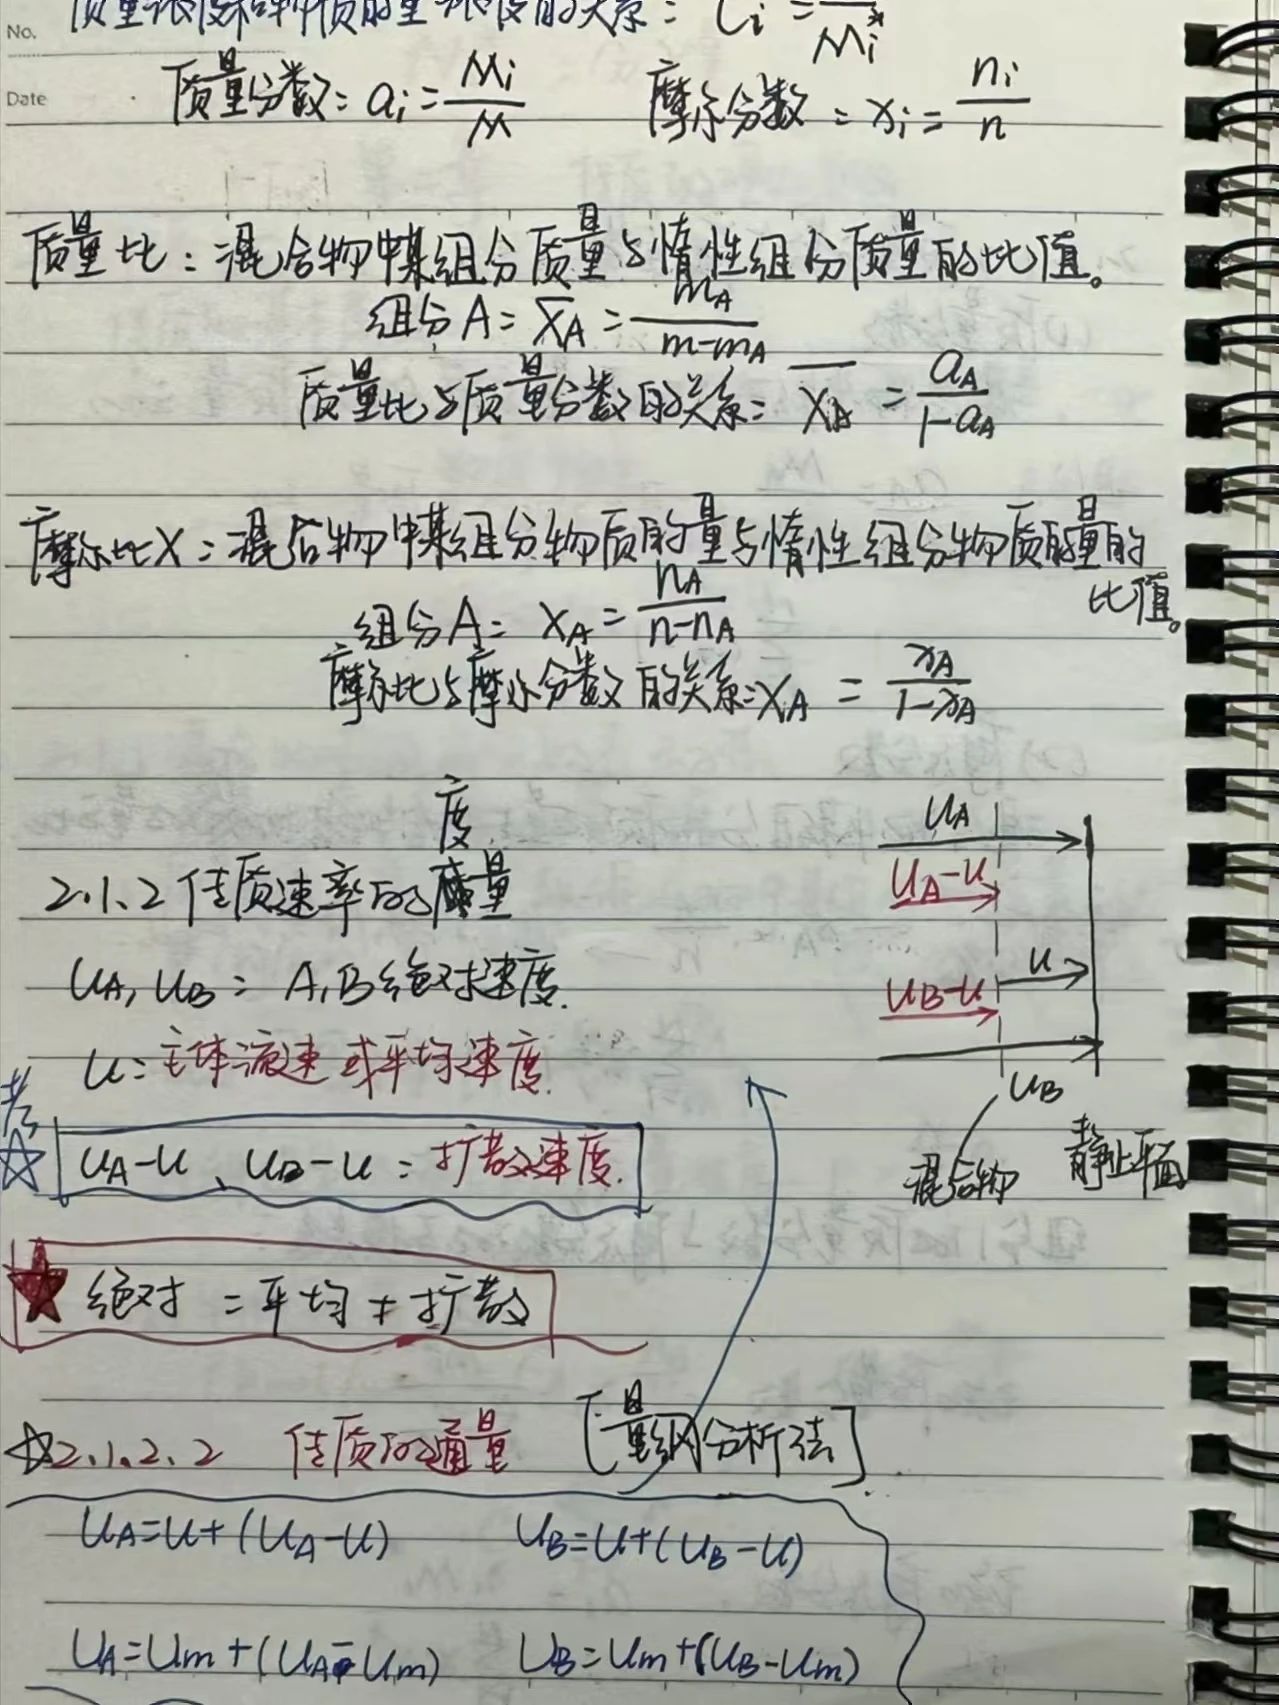 No.
质量浓度和物质的量浓度的关系: Ci =
Mi
Date
质量分数: ai = Mi/M 摩尔分数: xi = ni/n
质量比: 混合物中某组分质量与惰性组分质量的比值。
组分A: X̄A = mA/(m-mA)
质量比与质量分数的关系: X̄A = aA/(1-aA)
摩尔比X: 混合物中某组分物质的量与惰性组分物质的量的
比值。
组分A: XA = nA/(n-nA)
摩尔比与摩尔分数的关系: XA = xA/(1-xA)
度
2.1.2 传质速率的量
uA, uB: A,B绝对速度.
u: 主体流速或平均速度.
考
uA-u、uB-u: 扩散速度.
uA
uA-u
u
uB-u
uB
混合物 静止平面
绝对 = 平均 + 扩散
2.1.2.2 传质的通量 [量纲分析法]
uA=u+(uA-u) uB=u+(uB-u)
uA=um+(uA-um) uB=um+(uB-um)